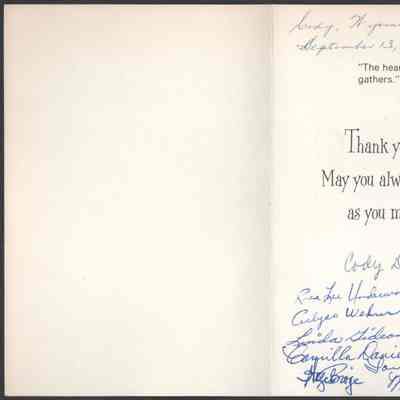 Cody, Wyom
September 13,
"The hear
gathers."
Thank y
May you alw
as you m
Cody D
Rea Lee Underwo
Wehur
Linda Gideon
Camilla Danie